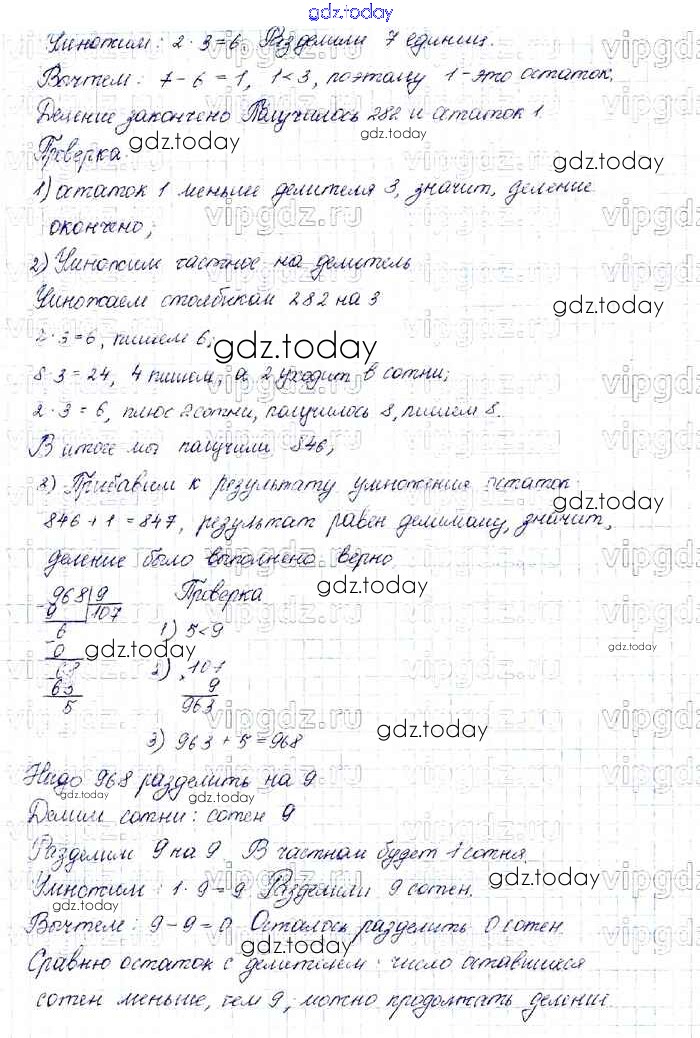 gdz.today
Умножим: 2·3=6. Разделили 7 единиц.
Вычтем: 7-6=1, 1<3, поэтому 1-это остаток.
Деление закончено Получилось 282 и остаток 1.
Проверка.
1) остаток 1 меньше делителя 3, значит, деление
окончено;
2) Умножим частное на делитель
Умножаем столбиком 282 на 3
2·3=6, пишем 6;
8·3=24, 4 пишем, а 2 уходит в сотни;
2·3=6, плюс 2 сотни, получилось 8, пишем 8.
В итоге мы получили 846;
3) Прибавим к результату умножения остаток:
846+1=847, результат равен делимому, значит,
деление было выполнено верно.
968 9 Проверка
9 107
6 1) 5<9
0
68 2) 107
63 9
5 963
3) 963+5=968
Надо 968 разделить на 9
Делим сотни: сотен 9
Разделим 9 на 9. В частном будет 1 сотня.
Умножим: 1·9=9 Разделили 9 сотен.
Вычтем: 9-9=0 Осталось разделить 0 сотен.
Сравню остаток с делителем: число оставшихся
сотен меньше, чем 9, можно продолжать деление